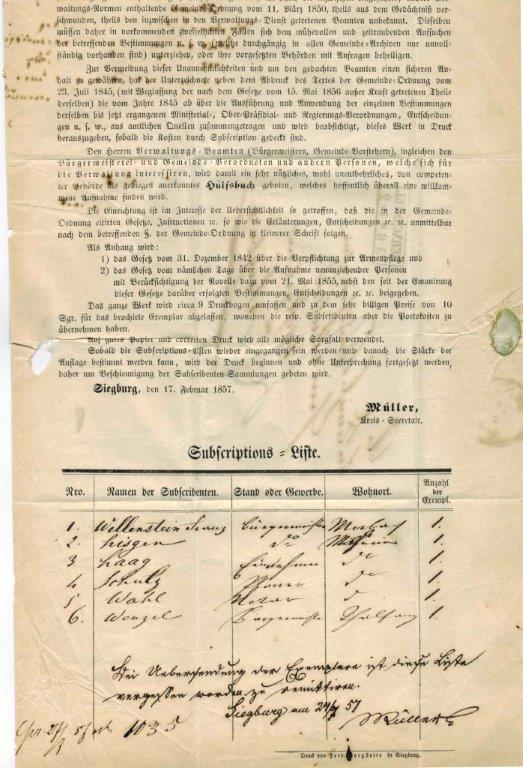 waltungs-Normen enthaltende Gemeinde-Ordnung vom 11. März 1850, theils aus dem Gedächtniß ver-
schwunden, theils den inzwischen in den Verwaltungs-Dienst getretenen Beamten unbekannt. Dieselben
müssen daher in vorkommenden zweifelhaften Fällen sich dem mühevollen und zeitraubenden Aufsuchen
der betreffenden Bestimmungen u. s. w. (welche durchgängig in allen Gemeinde-Archiven nur unvoll-
ständig vorhanden sind) unterziehen, oder ihre vorgesetzten Behörden mit Anfragen behelligen.
Zur Vermeidung dieser Unannehmlichkeiten und um den gedachten Beamten einen sicheren An-
halt zu gewähren, hat der Unterzeichnete neben dem Abdruck des Textes der Gemeinde-Ordnung vom
23. Juli 1845, (mit Weglassung der nach dem Gesetze vom 15. Mai 1856 außer Kraft getretenen Theile
derselben) die vom Jahre 1845 ab über die Ausführung und Anwendung der einzelnen Bestimmungen
derselben bis jetzt ergangenen Ministerial-, Ober-Präsidial- und Regierungs-Verordnungen, Entscheidun-
gen u. s. w., aus amtlichen Quellen zusammengetragen und wird beabsichtigt, dieses Werk in Druck
herauszugeben, sobald die Kosten durch Subscription gedeckt sind.
Den Herren Verwaltungs-Beamten (Bürgermeistern, Gemeinde-Vorstehern), ingleichen den
Bürgermeisterei- und Gemeinde-Verordneten und andern Personen, welche sich für
die Verwaltung interessiren, wird damit ein sehr nützliches, wohl unentbehrliches, von compete-
ter Behörde als gediegen anerkanntes Hülfsbuch geboten, welches hoffentlich überall eine willkom-
mene Aufnahme finden wird.
Die Einrichtung ist im Interesse der Uebersichtlichkeit so getroffen, daß die in der Gemeinde-
Ordnung citirten Gesetze, Instructionen ec. so wie die Erläuterungen, Entscheidungen ec. ec. unmittelbar
nach dem betreffenden §. der Gemeinde-Ordnung in kleinerer Schrift folgen.
Als Anhang wird:
1) das Gesetz vom 31. Dezember 1842 über die Verpflichtung zur Armenpflege und
2) das Gesetz vom nämlichen Tage über die Aufnahme neuanziehender Personen
mit Berücksichtigung der Novelle dazu vom 21. Mai 1855, nebst den seit der Emanirung
dieser Gesetze darüber erfolgten Bestimmungen, Entscheidungen ec. ec. beigegeben.
Das ganze Werk wird circa 9 Druckbogen umfassen und zu dem sehr billigen Preise von 10
Sgr. für das brochirte Exemplar abgelassen, woneben die resp. Subscribenten aber die Portokosten zu
übernehmen haben.
Auf gutes Papier und correcten Druck wird alle mögliche Sorgfalt verwendet.
Sobald die Subscriptions-Listen wieder eingegangen sein werden und danach die Stärke der
Auflage bestimmt werden kann, wird der Druck beginnen und ohne Unterbrechung fortgesetzt werden,
daher um Beschleunigung der Subscribenten-Sammlungen gebeten wird.
Siegburg, den 17. Februar 1857.
Müller,
Kreis-Secretair.
Subscriptions-Liste.
Nro. Namen der Subscribenten. Stand oder Gewerbe. Wohnort. Anzahl der Exempl.
1. Willenstein Franz Bürgermeister 1.
2 do 1.
3 Haag do 1.
4 Schulz do 1.
5 Wahl Notar do 1.
6. Wenzel Bürgermeister 1.
Bei Uebersendung der Exemplare ist diese Liste
vergessen worden zu remittiren.
Siegburg am 24/7 57
Müller
1035
Druck von in Siegburg.